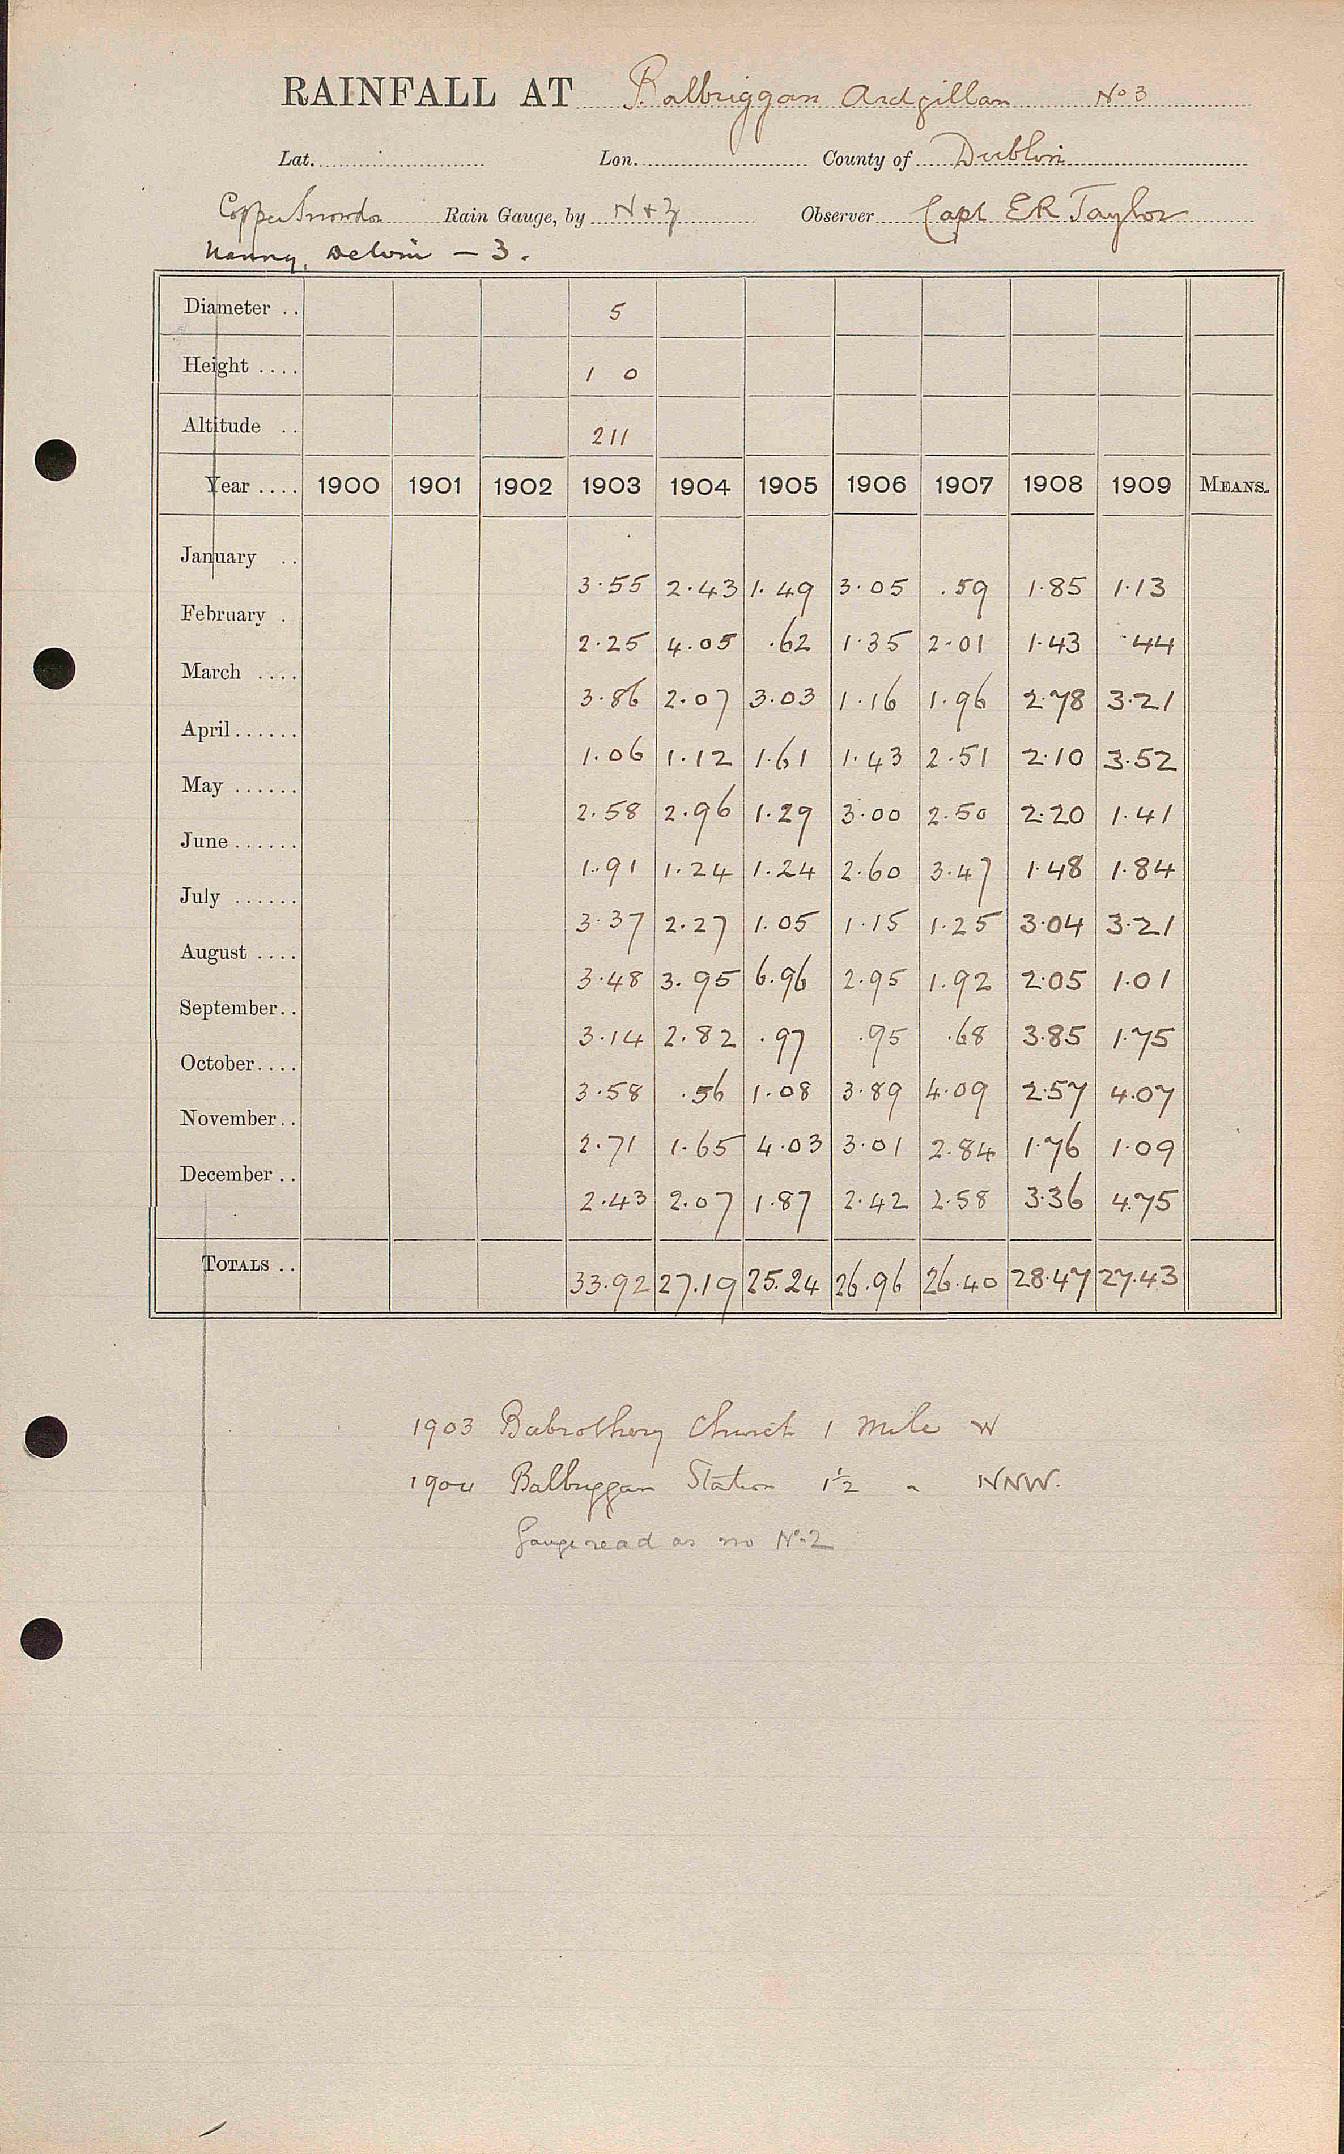 RAINFALL AT Balbriggan Ardgillan No 3
Lat. Lon. County of Dublin
Copper Snowdon Rain Gauge, by N & Z Observer Capt ER Taylor
Nanny, Delvin — 3.
Diameter .. 5
Height .... 1 0
Altitude .. 211
Year .... 1900 1901 1902 1903 1904 1905 1906 1907 1908 1909 MEANS.
January .. 3.55 2.43 1.49 3.05 .59 1.85 1.13
February . 2.25 4.05 .62 1.35 2.01 1.43 .44
March .... 3.86 2.07 3.03 1.16 1.96 2.78 3.21
April...... 1.06 1.12 1.61 1.43 2.51 2.10 3.52
May ...... 2.58 2.96 1.29 3.00 2.50 2.20 1.41
June...... 1.91 1.24 1.24 2.60 3.47 1.48 1.84
July ...... 3.37 2.27 1.05 1.15 1.25 3.04 3.21
August .... 3.48 3.95 6.96 2.95 1.92 2.05 1.01
September.. 3.14 2.82 .97 .95 .68 3.85 1.75
October.... 3.58 .56 1.08 3.89 4.09 2.57 4.07
November.. 2.71 1.65 4.03 3.01 2.84 1.76 1.09
December .. 2.43 2.07 1.87 2.42 2.58 3.36 4.75
TOTALS .. 33.92 27.19 25.24 26.96 26.40 28.47 27.43
1903 Balrothery Church 1 mile W
1904 Balbriggan Station 1½ " NNW.
Gauge read as no No 2